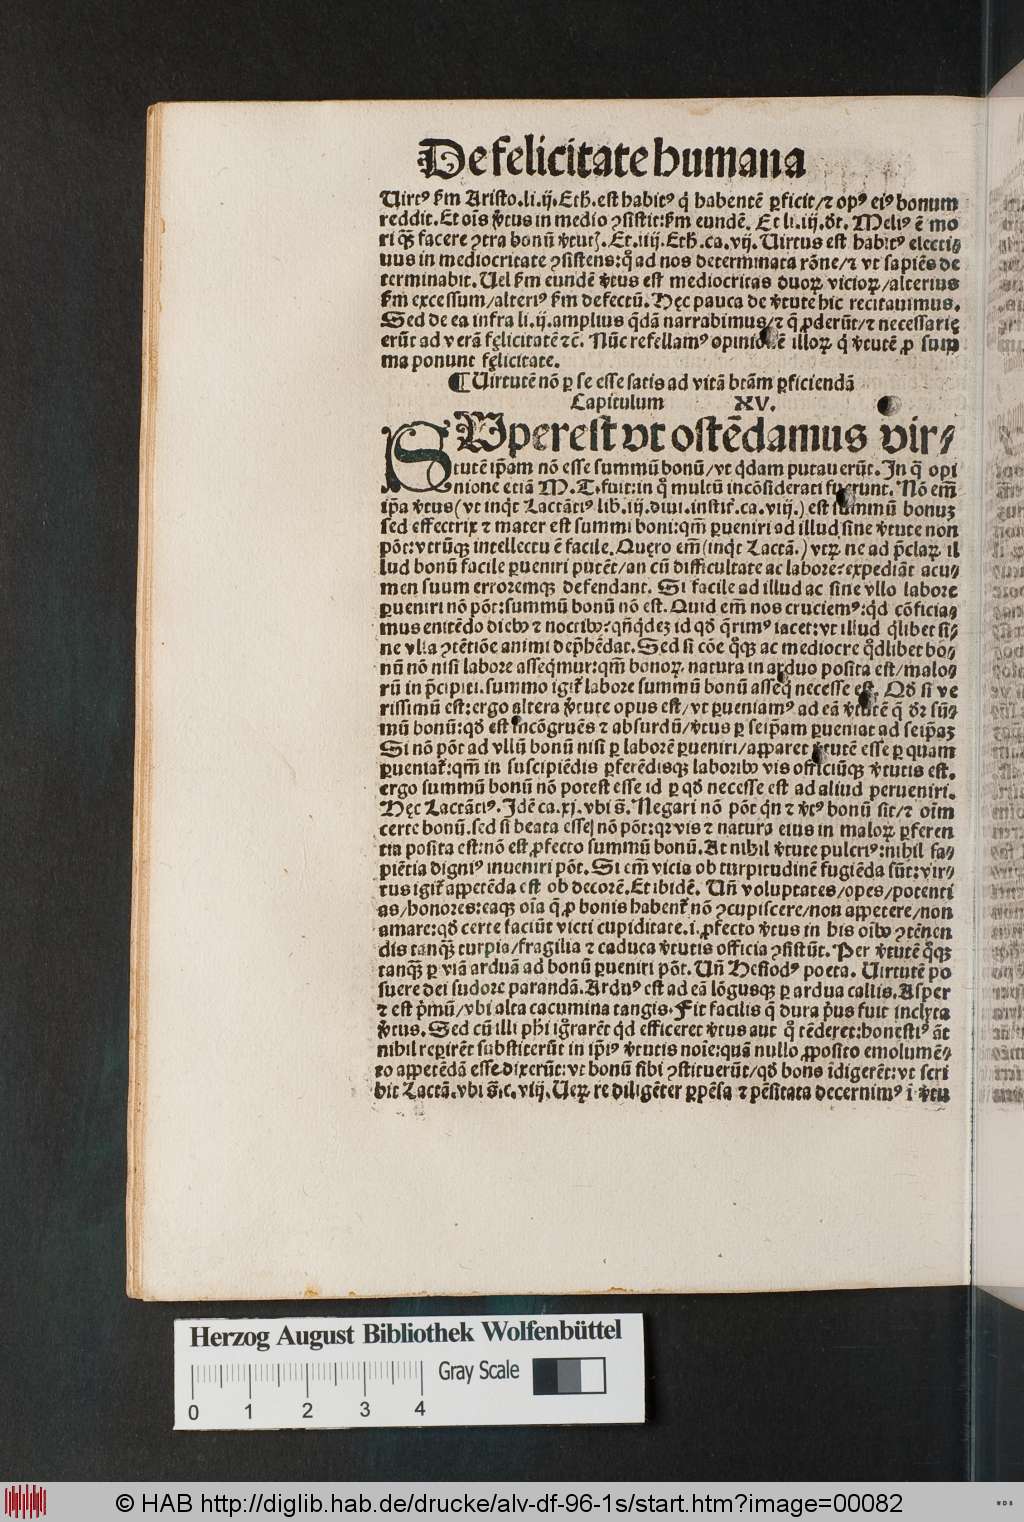 De felicitate humana
Uirtꝰ ẜm Aristo.li.ij.Eth̄.est habitꝰ q̄ habentē ꝑficit/⁊ opꝰ eiꝰ bonum
reddit.Et oīs v̓tus in medio ꝯsistit:ẜm eundē. Et li.iij.d̄t. Meliꝰ ē mo
ri q̄ꝫ facere ꝯtra bonū v̓tutꝭ. Et.iiij.Eth̄.ca.vij. Uirtus est habitꝰ electi⸗
uus in mediocritate ꝯsistens:q̄ ad nos determinata rōne/⁊ vt sapiēs de
terminabit. Uel ẜm eundē v̓tus est mediocritas duoꝝ vicioꝝ/alterius
ẜm excessum/alteriꝰ ẜm defectū. Hęc pauca de v̓tute hic recitauimus.
Sed de ea infra li.ij.amplius q̄dā narrabimus/⁊ q̄ ꝓderūt/⁊ necessarię
erūt ad verā fęlicitatē ⁊c̄. Nūc refellamꝰ opinionē illoꝝ q̄ v̓tutē ꝓ sum
ma ponunt fęlicitate.
¶ Uirtutē nō ꝑ se esse satis ad vitā btām ꝑficiendā
Capitulum XV.
SUperest vt ostēdamus vir⸗
tutē ip̄am nō esse summū bonū/vt q̄dam putauerūt. In q̄ opi
nione etiā M.T.fuit:in q̊ multū incōsiderati fuerunt. Nō em̄
ip̄a v̓tus (vt inq̇t Lactātiꝰ lib.iij.diui.instit̉.ca.viij.) est summū bonuꝫ
sed effectrix ⁊ mater est summi boni:qm̄ ꝑueniri ad illud sine v̓tute non
pōt:vtrūqꝫ intellectu ē facile. Quęro em̄ (inq̇t Lactā.) vtꝝ ne ad p̄claꝝ il
lud bonū facile ꝑueniri putēt/an cū difficultate ac labore?expediāt acu⸗
men suum erroremqꝫ defendant. Si facile ad illud ac sine vllo labore
ꝑueniri nō pōt:summū bonū nō est. Quid em̄ nos cruciemꝰ:q̇d cōficia⸗
mus enitēdo dieb ⁊ noctib?qn̄q̇deꝫ id qd̄ q̄rimꝰ iacet:vt illud q̇libet si⸗
ne vlla ꝯtētiōe animi dep̄hēdat. Sed si cōe q̊qꝫ ac mediocre q̊dlibet bo⸗
nū nō nisi labore asseq̄mur:qm̄ bonoꝝ natura in arduo posita est/malo⸗
rū in p̄cipiti.summo igit̉ labore summū bonū asseq̄ necesse est. Qd̄ si ve
rissimū est:ergo altera v̓tute opus est/vt ꝑueniamꝰ ad eā v̓tutē q̄ dr̄ sū⸗
mū bonū:qd̄ est incōgruēs ⁊ absurdū/v̓tus ꝑ seip̄am ꝑueniat ad seip̄aꝫ
Si nō pōt ad vllū bonū nisi ꝑ laborē ꝑueniri/apparet v̓tutē esse ꝑ quam
ꝑueniat̉:qm̄ in suscipiēdis ꝑferēdisqꝫ laborib vis officiūqꝫ v̓tutis est.
ergo summū bonū nō potest esse id ꝑ qd̄ necesse est ad aliud perueniri.
Hęc Lactātiꝰ. Idē ca.xj.vbi s̄. Negari nō pōt q̇n ⁊ v̓tꝰ bonū sit/⁊ oīm
certe bonū.sed si beata esse nō pōt:qꝛ vis ⁊ natura eius in maloꝝ ꝑferen
tia posita est:nō est ꝓfecto summū bonū. At nihil v̓tute pulcriꝰ:nihil sa⸗
piētia digniꝰ inueniri pōt. Si em̄ vicia ob turpitudinē fugiēda sūt:vir⸗
tus igit̉ appetēda est ob decorē. Et ibidē. Un̄ voluptates/opes/potenti
as/honores:eaqꝫ oīa q̄ ꝓ bonis habent̉ nō ꝯcupiscere/non appetere/non
amare:qd̄ certe faciūt victi cupiditate.i.ꝓfecto v̓tus in his oīb ꝯtēnen
dis tanq̄ꝫ turpia/fragilia ⁊ caduca v̓tutis officia ꝯsistūt. Per v̓tutē q̊qꝫ
tanq̄ꝫ ꝑ viā arduā ad bonū ꝑueniri pōt. Un̄ Hesiodꝰ poeta. Uirtutē po
suere dei sudore parandā. Arduꝰ est ad eā lōgusqꝫ ꝑ ardua callis. Asper
⁊ est ṗmū/vbi alta cacumina tangis. Fit facilis q̄ dura ṗus fuit inclyta
v̓tus. Sed cū illi ph̄i igr̄arēt q̇d efficeret v̓tus aut q̊ tēderet:honestiꝰ āt
nihil reꝑirēt substiterūt in ip̄iꝰ v̓tutis noīe:quā nullo ꝓposito emolumē⸗
to appetēdā esse dixerūt:vt bonū sibi ꝯstituerūt/qd̄ bono īdigerēt:vt scri
bit Lactā.vbi s̄.c.viij. Ueꝝ re diligēter ꝑpēsa ⁊ pēsitata decernimꝰ ī v̓tu
Herzog August Bibliothek Wolfenbüttel
Gray Scale
0 1 2 3 4
© HAB http://diglib.hab.de/drucke/alv-df-96-1s/start.htm?image=00082